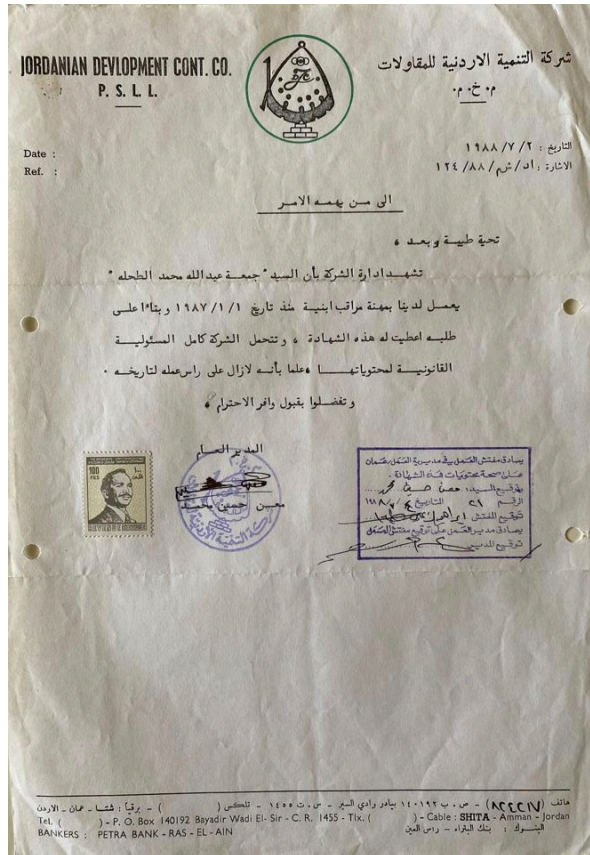 JORDANIAN DEVLOPMENT CONT. CO.
P. S. L. L.
شركة التنمية الاردنية للمقاولات
م. خ. م.
Date :
Ref. :
التاريخ : ١٩٨٨/٧/٢
الاشارة : اد/ش م/١٢٤/٨٨
الى من يهمه الامر
تحية طيبة وبعد ،
تشهد ادارة الشركة بأن السيد " جمعة عبدالله محمد الطحله "
يعمل لدينا بمهنة مراقب ابنية منذ تاريخ ١٩٨٧/١/١ وبناءا على
طلبه اعطيت له هذه الشهادة ، وتتحمل الشركة كامل المسئولية
القانونية لمحتوياتها ،علما بأنه لازال على راس عمله لتاريخه .
وتفضلوا بقبول وافر الاحترام ،
المدير العام
معين حسين محمد
100
FILS
١٠٠
فلس
يصادق مفتش العمل في مديرية العمل بعمان
على صحة محتويات هذه الشهادة
بتوقيع السيد: معين حسين محمد
الرقم ٢٦ التاريخ
توقيع المفتش ابراهيم
يصادق مدير العمل على توقيع مفتش العمل
توقيع المدير
هاتف (٨٢٤٢١٧) - ص . ب ١٤٠١٩٢ بيادر وادي السير - س . ت ١٤٥٥ - تلكس ( ) - برقياً : شتا - عمان - الاردن
Tel. ( ) - P. O. Box 140192 Bayadir Wadi El- Sir - C. R. 1455 - Tlx. ( ) - Cable : SHITA - Amman - Jordan
BANKERS : PETRA BANK - RAS - EL - AIN
البنوك : بنك البتراء - راس العين